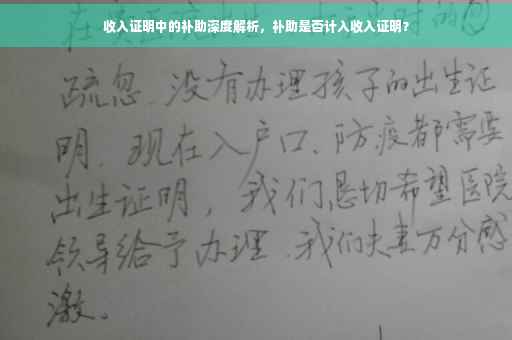 收入证明中的补助深度解析，补助是否计入收入证明？
疏忽、没有办理孩子的出生证
明、现在入户口、防疫都需要
出生证明，我们恳切希望医院
领导给予办理、我们夫妻万分感
激。